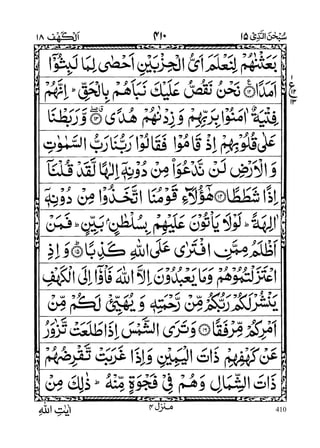 سُبْحٰنَ الَّذِیْ ١٥
٤١٠
اَلْكَهْف ١٨
بَعَثْنٰهُمْ لِنَعْلَمَ اَیُّ الْحِزْبَیْنِ اَحْصٰی لِمَا لَبِثُوْۤا
اَمَدًا ۝١٢ نَحْنُ نَقُصُّ عَلَیْكَ نَبَاَهُمْ بِالْحَقِّ ؕ اِنَّهُمْ
فِتْیَةٌ اٰمَنُوْا بِرَبِّهِمْ وَزِدْنٰهُمْ هُدًی ۝١٣ وَّرَبَطْنَا
عَلٰی قُلُوْبِهِمْ اِذْ قَامُوْا فَقَالُوْا رَبُّنَا رَبُّ السَّمٰوٰتِ
وَالْاَرْضِ لَنْ نَّدْعُوَا۟ مِنْ دُوْنِهٖۤ اِلٰهًا لَّقَدْ قُلْنَاۤ
اِذًا شَطَطًا ۝١٤ هٰۤؤُلَآءِ قَوْمُنَا اتَّخَذُوْا مِنْ دُوْنِهٖۤ
اٰلِهَةً ؕ لَوْلَا یَاْتُوْنَ عَلَیْهِمْ بِسُلْطٰنٍۭ بَیِّنٍ ؕ فَمَنْ
اَظْلَمُ مِمَّنِ افْتَرٰی عَلَی اللّٰهِ كَذِبًا ۝١٥ وَاِذِ
اعْتَزَلْتُمُوْهُمْ وَمَا یَعْبُدُوْنَ اِلَّا اللّٰهَ فَاْوٗۤا اِلَی الْكَهْفِ
یَنْشُرْ لَكُمْ رَبُّكُمْ مِّنْ رَّحْمَتِهٖ وَیُهَیِّئْ لَكُمْ مِّنْ
اَمْرِكُمْ مِّرْفَقًا ۝١٦ وَتَرَی الشَّمْسَ اِذَا طَلَعَتْ تَّزٰوَرُ
عَنْ كَهْفِهِمْ ذَاتَ الْیَمِیْنِ وَاِذَا غَرَبَتْ تَّقْرِضُهُمْ
ذَاتَ الشِّمَالِ وَهُمْ فِیْ فَجْوَةٍ مِّنْهُ ؕ ذٰلِكَ مِنْ
اٰیٰتِ اللّٰهِ
منزل ٤
410